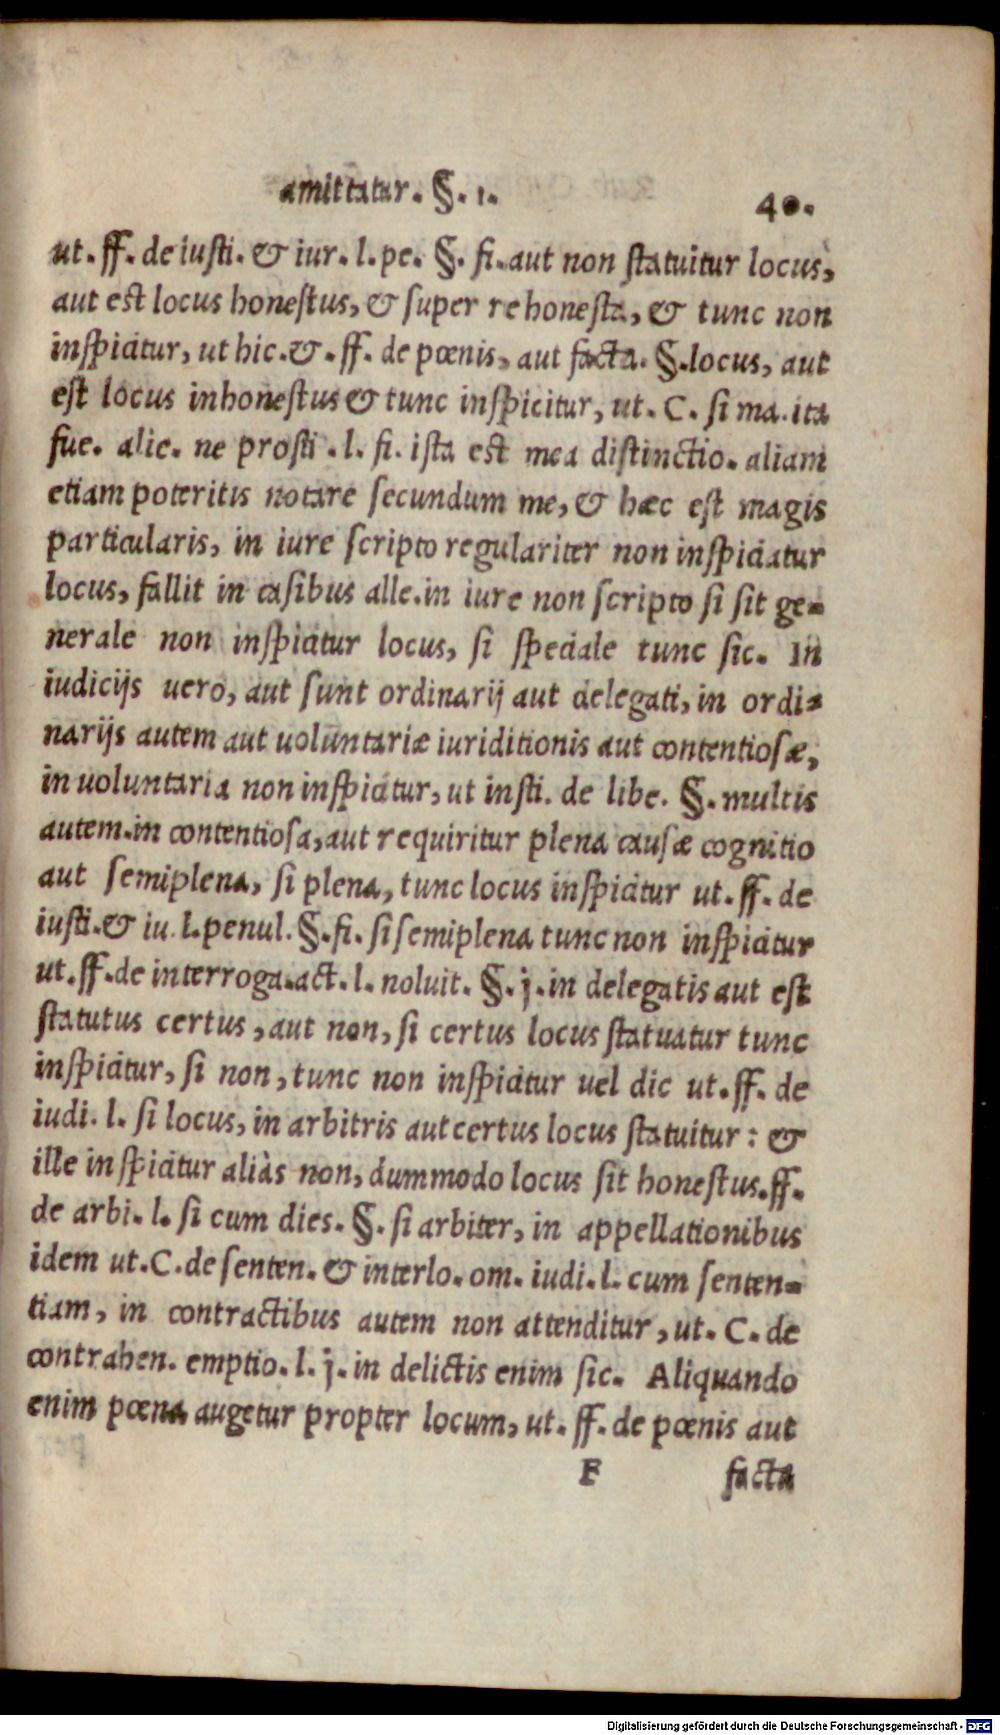 amittatur. §. 1.
40.
ut. ff. de iusti. & iur. l. pe. §. fi. aut non statuitur locus,
aut est locus honestus, & super re honesta, & tunc non
inspicitur, ut hic. &. ff. de pœnis, aut facta. §. locus, aut
est locus inhonestus & tunc inspicitur, ut. C. si ma. ita
fue. alie. ne prosti. l. fi. ista est mea distinctio. aliam
etiam poteritis notare secundum me, & hæc est magis
particularis, in iure scripto regulariter non inspiciatur
locus, fallit in casibus alle. in iure non scripto si sit ge-
nerale non inspicitur locus, si speciale tunc sic. In
iudicijs uero, aut sunt ordinarij aut delegati, in ordi-
narijs autem aut uoluntariæ iuriditionis aut contentiosæ,
in uoluntaria non inspicitur, ut insti. de libe. §. multis
autem. in contentiosa, aut requiritur plena causæ cognitio
aut semiplena, si plena, tunc locus inspicitur ut. ff. de
iusti. & iu. l. penul. §. fi. si semiplena tunc non inspicitur
ut. ff. de interroga. act. l. noluit. §. j. in delegatis aut est
statutus certus, aut non, si certus locus statuatur tunc
inspicitur, si non, tunc non inspicitur uel dic ut. ff. de
iudi. l. si locus, in arbitris aut certus locus statuitur: &
ille inspicitur aliàs non, dummodo locus sit honestus. ff.
de arbi. l. si cum dies. §. si arbiter, in appellationibus
idem ut. C. de senten. & interlo. om. iudi. l. cum senten-
tiam, in contractibus autem non attenditur, ut. C. de
contrahen. emptio. l. j. in delictis enim sic. Aliquando
enim pœna augetur propter locum, ut. ff. de pœnis aut
F
facta
Digitalisierung gefördert durch die Deutsche Forschungsgemeinschaft - DFG